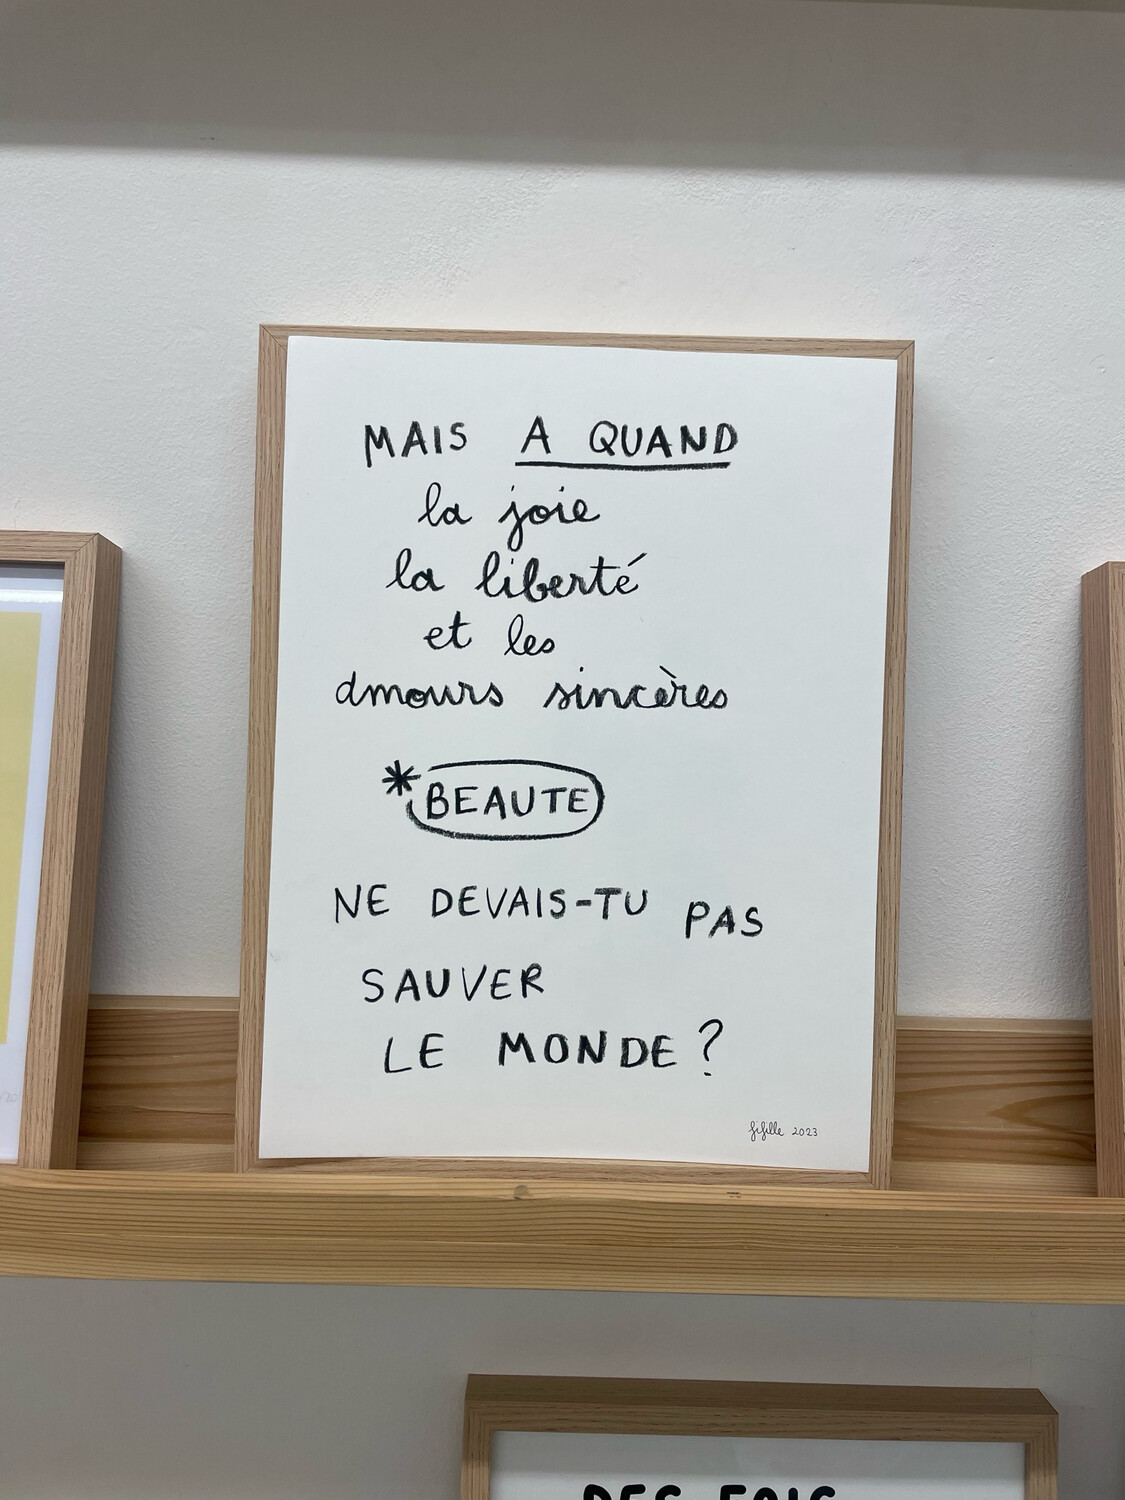 MAIS A QUAND
la joie
la liberté
et les
amours sincères
*BEAUTE
NE DEVAIS-TU PAS
SAUVER
LE MONDE ?
fifille 2023
DES FOIS